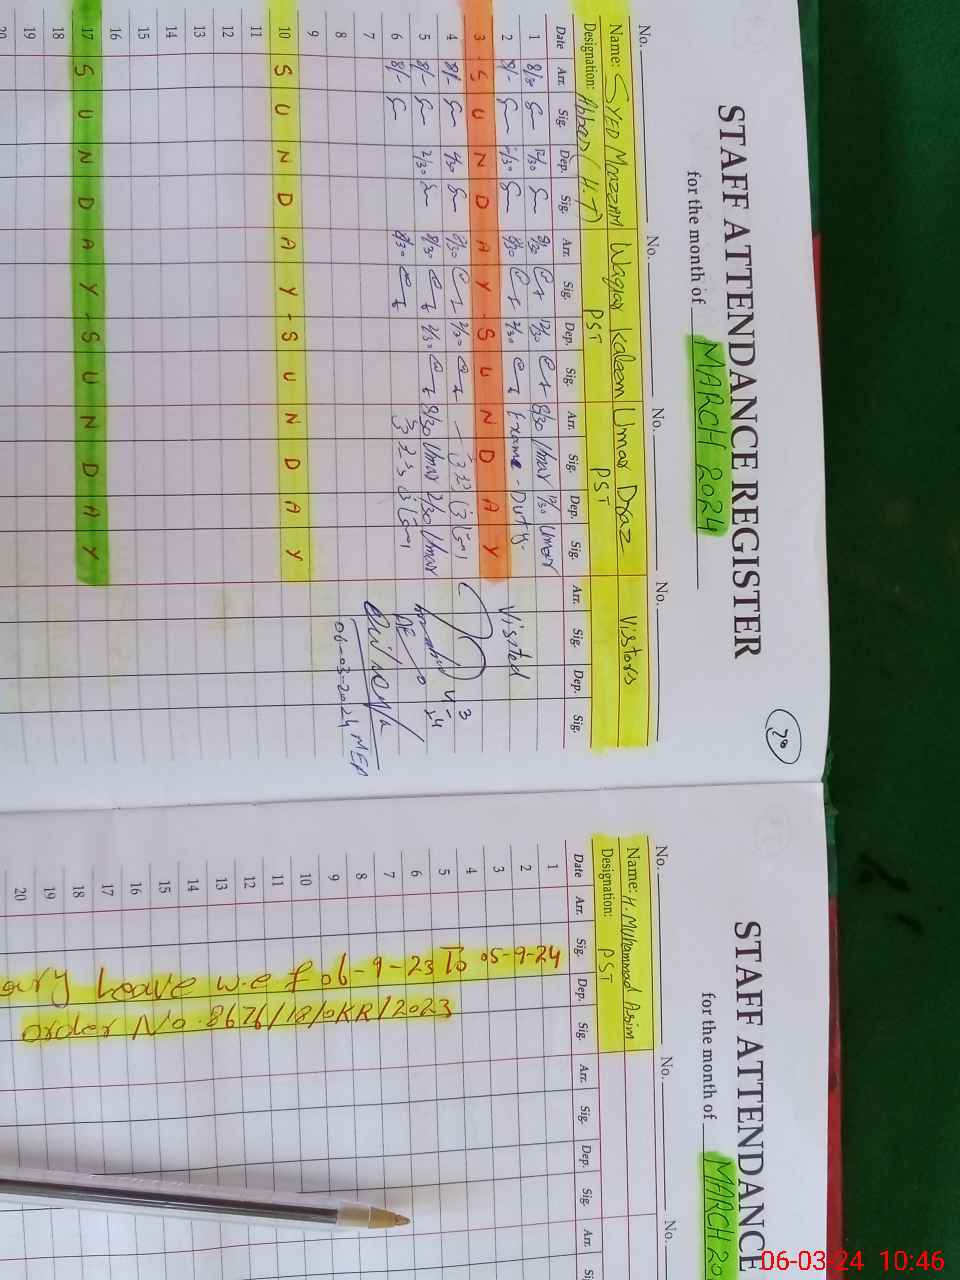 STAFF ATTENDANCE REGISTER
for the month of MARCH 2024
No. No. No. No.
Name: SYED Moazzam Waqar Kaleem Umar Draz Vistors
Designation: Abbas (H.T) PST PST
Date Arr. Sig. Dep. Sig. Arr. Sig. Dep. Sig. Arr. Sig. Dep. Sig. Arr. Sig. Dep. Sig.
1 8/30 12/30 8/30 12/30 8/30 Umar 12/30 Umar
2 8/- 2/30 8/30 2/30 Exame-Duty. Visited
3 SUNDAY-SUNDAY
4 8/- 2/30 8/30 2/30
5 8/- 2/30 8/30 2/30 8/30 Umar 2/30 Umar
6 8/- 8/30
7
8
9
10 SUNDAY-SUNDAY
11
12
13
14
15
16
17 SUNDAY-SUNDAY
18
19
20
AE
06-03-2024 MEA
STAFF ATTENDANCE
for the month of MARCH 20
No. No. No.
Name: H. Muhammad Asim
Designation: PST
Date Arr. Sig. Dep. Sig. Arr. Sig. Dep. Sig. Arr.
1
2
3
4
5
6
7
8
9
10
11
12
13
14
15
16
17
18
19
20
Leave w.e.f 06-9-23 To 05-9-24
order No. 8676/18/OKR/2023
06-03-24 10:46